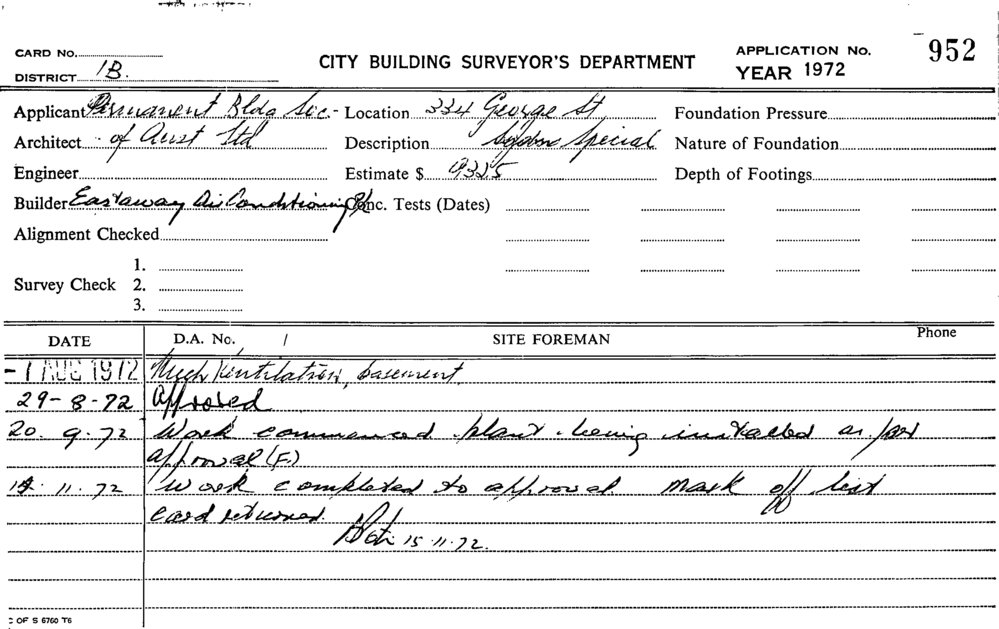 CARD No.
DISTRICT 1B.
CITY BUILDING SURVEYOR'S DEPARTMENT
APPLICATION No. 952
YEAR 1972
Applicant Permanent Bldg Soc.
Location 334 George St
Foundation Pressure
Architect of Aust Ltd
Description Special
Nature of Foundation
Engineer
Estimate $ 9325
Depth of Footings
Builder Eastaway Air Conditioning P/L
Conc. Tests (Dates)
Alignment Checked
1.
Survey Check 2.
3.
DATE D.A. No. / SITE FOREMAN Phone
-1 AUG 1972 Mech Ventilation, basement
29-8-72 Approved
20.9.72 Work commenced plant being installed as per
approval (F.)
14.11.72 Work completed to approval mark off list
Card returned.
15.11.72.
C OF S 6760 T6